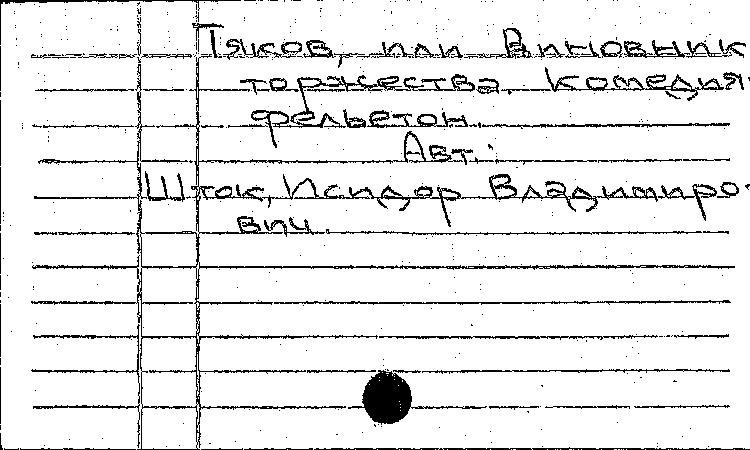 Тяков, или Виновник
торжества. Комедия-
фельетон.
Авт.:
Шток, Исидор Владимиро-
вич.